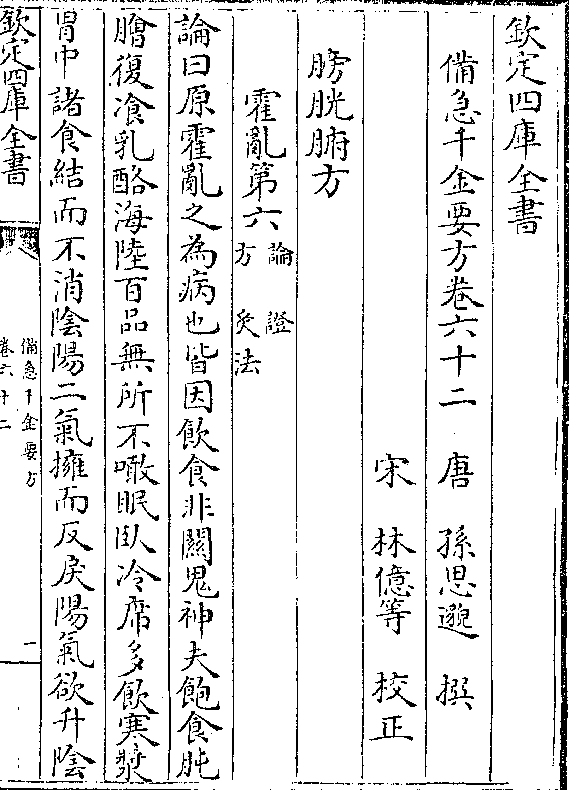 欽定四庫全書
備急千金要方卷六十二
唐 孫思邈 撰
宋 林億等 校正
膀胱腑方
霍亂第六論 證
方 灸法
論曰原霍亂之為病也皆因飲食非關鬼神夫飽食肫
膾復飡乳酪海陸百品無所不噉眠臥冷席多飲寒漿
胃中諸食結而不消陰陽二氣擁而反戾陽氣欲升陰
欽定四庫全書
備急千金要方
卷六十二
一